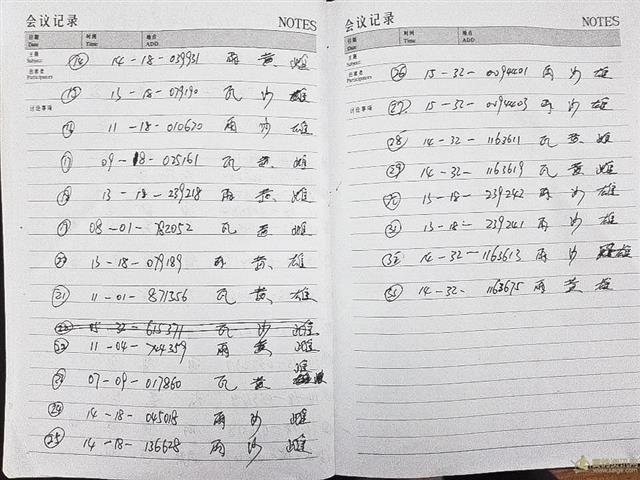 会议记录 NOTES
日期 Date 时间 Time 地点 ADD.
主题 Subject
出席者 Participators
讨论事项
⑭ 14-18-039931 雨 黄 雌
⑮ 13-18-079190 瓦 沙 雄
⑯ 11-18-010620 雨 沙 雄
⑰ 09-18-025161 瓦 黄 雌
⑱ 13-18-239218 雨 黄 雌
⑲ 08-01-782052 瓦 黄 雌
⑳ 13-18-079189 雨 黄 雄
㉑ 11-01-871356 瓦 黄 雄
15-32-615371 瓦 沙 雌
㉒ 11-04-744359 雨 黄 雌
㉓ 07-09-017860 瓦 黄 雌
㉔ 14-18-045018 雨 沙 雌
㉕ 14-18-136628 雨 沙 雌
会议记录 NOTES
日期 Date 时间 Time 地点 ADD.
主题 Subject
出席者 Participators
讨论事项
㉖ 15-32-0094401 雨 沙 雄
㉗ 15-32-0094403 雨 沙 雄
㉘ 14-32-1163611 瓦 黄 雌
㉙ 14-32-1163619 瓦 黄 雌
㉚ 13-18-239242 雨 沙 雄
㉛ 13-18-239241 雨 沙 雄
㉜ 14-32-1163613 雨 沙 雄
㉝ 14-32-1163675 雨 黄 雄